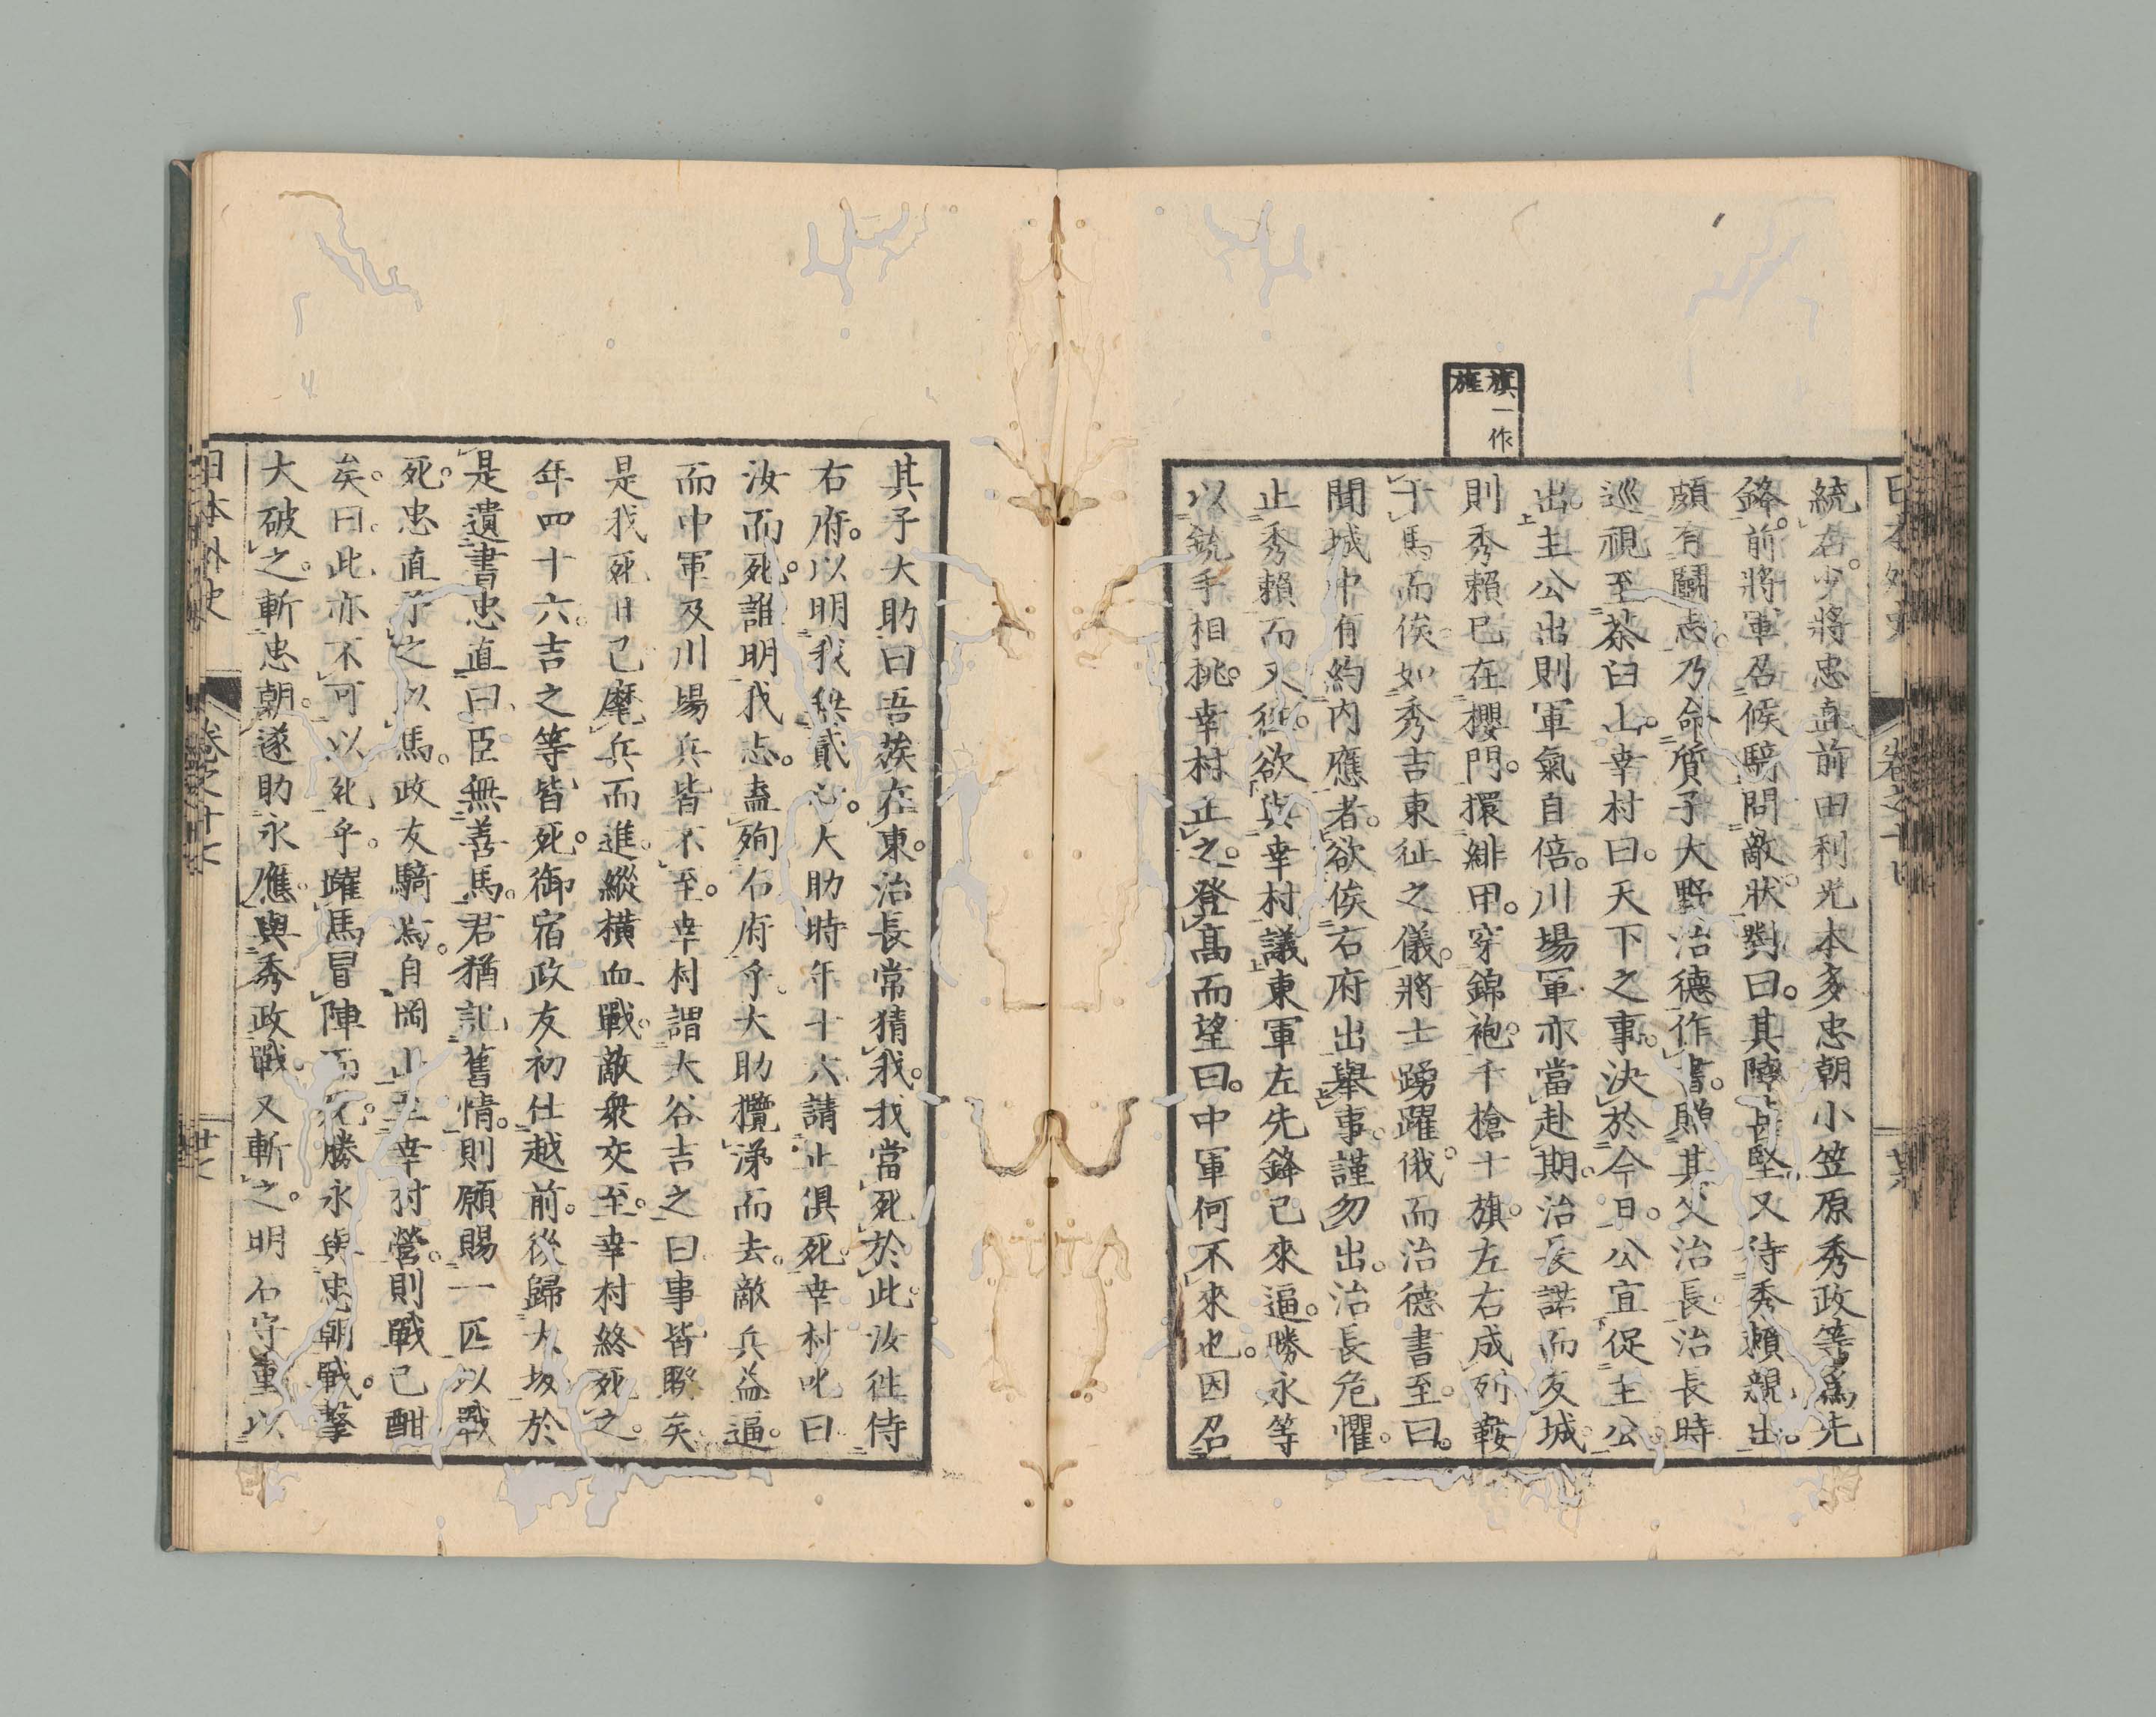 旗一作
旌
統右。少將忠直前田利光本多忠朝小笠原秀政等爲先
鋒。前將軍召候騎問敵狀。對曰。其陣甚堅。又待秀賴親出。
頗有鬪志。乃命質子大野治德作書。贈其父治長。治長時
巡視至茶臼山。幸村曰。天下之事。決於今日。公宜促主公
出。主公出則軍氣自倍。川場軍亦當赴期。治長諾而反城。
則秀賴已在櫻門。擐緋甲。穿錦袍。千槍十旗。左右成列。鞍
于馬而俟。如秀吉東征之儀。將士踴躍。俄而治德書至。曰。
聞城中有約內應者。欲俟右府出擧事。謹勿出。治長危懼。
止秀賴而又徃。欲與幸村議。東軍左先鋒已來逼。勝永等
以銃手相挑。幸村止之。登高而望曰。中軍何不來也。因召
其子大助曰。吾族在東。治長常猜我。我當死於此。汝徃侍
右府。以明我無貳心。大助時年十六。請止俱死。幸村叱曰
汝而死。誰明我志。盍殉右府乎。大助攬涕而去。敵兵益逼。
而中軍及川場兵皆不至。幸村謂大谷吉之曰。事皆睽矣
是我死日已。麾兵而進。縱橫血戰。敵衆交至。幸村終死之。
年四十六。吉之等皆死。御宿政友初仕越前。後歸大坂。於
是遺書忠直曰。臣無善馬。君猶記舊情。則願賜一匹以戰
死。忠直予之以馬。政友騎焉。自岡山至幸村營。則戰已酣
矣。曰。此亦不可以死乎。躍馬冒陣而死。勝永與忠朝戰。擊
大破之。斬忠朝。遂助永應。與秀政戰。又斬之。明石守重以
日本外史
卷之